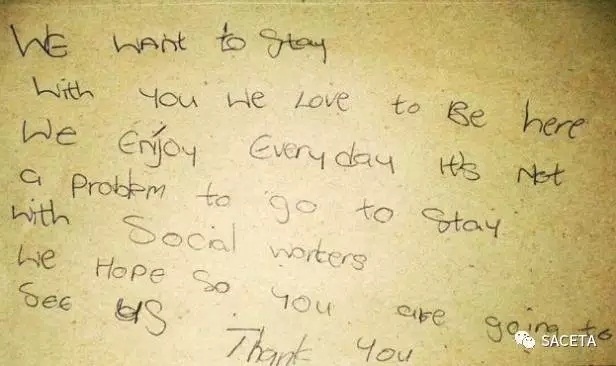 WE WANT to Stay
With you We Love to Be here
We Enjoy Everyday It's Not
a Problem to go to Stay
with Social workers
We Hope So you are going to
See US
Thank You
SACETA